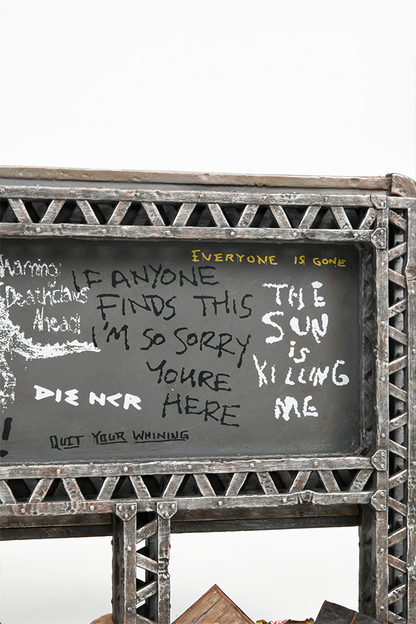 EVERYONE IS GONE
Warning!
Deathclaws
Ahead!
IF ANYONE
FINDS THIS
I'M SO SORRY
YOURE
HERE
THE
SUN
is
KILLING
ME
DIE NCR
QUIT YOUR WHINING
!